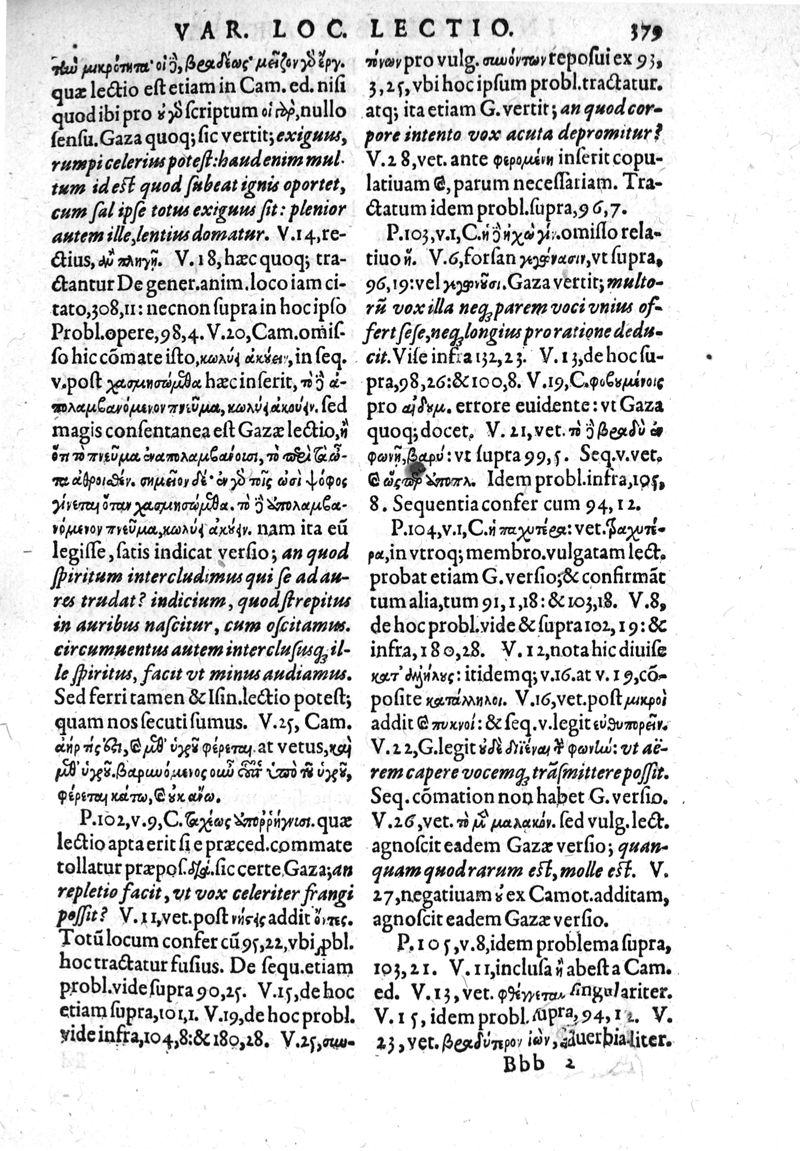 VAR. LOC. LECTIO. 379
τὴν μικρότητα· οἱ δὲ, βραδέως· μεῖζον γὰρ ἔργ.
quæ lectio est etiam in Cam. ed. nisi
quod ibi pro γὰρ scriptum οἱ γὰρ, nullo
sensu. Gaza quoq; sic vertit; exiguus,
rumpi celerius potest: haud enim mul-
tum id est quod subeat ignis oportet,
cum sal ipse totus exiguus sit: plenior
autem ille, lentius domatur. V.14, re-
ctius, ἂν πληγῇ. V.18, hæc quoq; tra-
ctantur De gener. anim. loco iam ci-
tato, 308, 11: necnon supra in hoc ipso
Probl. opere, 98, 4. V.20, Cam. omis-
so hic cōmate isto, κωλύει ἀκούειν, in seq.
v. post χασμησώμεθα hæc inserit, τὸ δὲ ἀ-
πολαμβανόμενον πνεῦμα, κωλύει ἀκούειν. sed
magis consentanea est Gazæ lectio, ἢ
ὅτι τὸ πνεῦμα ἐναπολαμβάνοισι, τὸ περὶ τὰ ὦ-
τα ἀθροισθέν. σημεῖον δέ· ἐν γὰρ τοῖς ὠσὶ ψόφος
γίνεται ὅταν χασμησώμεθα. τὸ δὲ ὑπολαμβα-
νόμενον πνεῦμα, κωλύει ἀκούειν. nam ita eū
legisse, satis indicat versio; an quod
spiritum intercludimus qui se ad au-
res trudat? indicium, quod strepitus
in auribus nascitur, cum oscitamus.
circumuentus autem interclususq; il-
le spiritus, facit vt minus audiamus.
Sed ferri tamen & Isin. lectio potest;
quam nos secuti sumus. V.25, Cam.
ἀὴρ τίς ἐστι, καὶ μεθ' ὑγροῦ φέρεται. at vetus, καὶ
μεθ' ὑγροῦ. βαρυνόμενος οὖν ὑπὸ τοῦ ὑγροῦ,
φέρεται κάτω, καὶ οὐκ ἄνω.
P.102, v.9, C. ταχέως ὑπορρήγνυσι. quæ
lectio apta erit si e præced. commate
tollatur præpos. διὰ. sic certe, Gaza; an
repletio facit, vt vox celeriter frangi
possit? V.11, vet. post νήστις addit ὄντες.
Totū locum confer cū 95, 22, vbi probl.
hoc tractatur fusius. De sequ. etiam
probl. vide supra 90, 25. V.15, de hoc
etiam supra, 101, 1. V.19, de hoc probl.
vide infra, 104, 8: & 180, 28. V.25, συν-
τόνων pro vulg. συνόντων reposui ex 93,
3, 25, vbi hoc ipsum probl. tractatur.
atq; ita etiam G. vertit; an quod cor-
pore intento vox acuta depromitur?
V.28, vet. ante φερομένη inserit copu-
latiuam καὶ, parum necessariam. Tra-
ctatum idem probl. supra, 96, 7.
P.103, v.1, C. ἢ δὲ ἠχὼ γίν. omisso rela-
tiuo ἥ. V.6, forsan γεγώνασιν, vt supra,
96, 19: vel γεγωνοῦσι. Gaza vertit; multo-
rū vox illa neq; parem voci vnius of-
fert sese, neq; longius pro ratione dedu-
cit. Vise infra 132, 23. V.13, de hoc su-
pra, 98, 26: & 100, 8. V.19, C. φοβουμένοις
pro αἰδουμ. errore euidente: vt Gaza
quoq; docet. V.21, vet. τὸ δὲ βραδὺ ἐν
φωνῇ, βαρύ: vt supra 99, 5. Seq. v. vet.
καὶ ὥσπερ ὑποπλ. Idem probl. infra, 105,
8. Sequentia confer cum 94, 12.
P.104, v.1, C. ἢ παχυτέρα: vet. βραχυτέ-
ρα, in vtroq; membro. vulgatam lect.
probat etiam G. versio; & confirmāt
tum alia, tum 91, 1, 18: & 103, 18. V.8,
de hoc probl. vide & supra 102, 19: &
infra, 180, 28. V.12, nota hic diuise
κατ' ἀλλήλους: itidemq; v.16. at v.19, cō-
posite κατάλληλοι. V.16, vet. post μικροὶ
addit καὶ πυκνοί: & seq. v. legit εὐθυπορεῖν.
V.22, G. legit οὐδὲ διϊέναι τὴν φωνήν: vt aë-
rem capere vocemq; trāsmittere possit.
Seq. cōmation non habet G. versio.
V.26, vet. τὸ μὲν μαλακόν. sed vulg. lect.
agnoscit eadem Gazæ versio; quan-
quam quod rarum est, molle est. V.
27, negatiuam οὐ ex Camot. additam,
agnoscit eadem Gazæ versio.
P.105, v.8, idem problema supra,
103, 21. V.11, inclusa ἢ abest a Cam.
ed. V.13, vet. φθέγγεται singulariter.
V.15, idem probl. supra, 94, 12. V.
23, vet. βραδύτερον ἰὼν, aduerbialiter.
Bbb 2